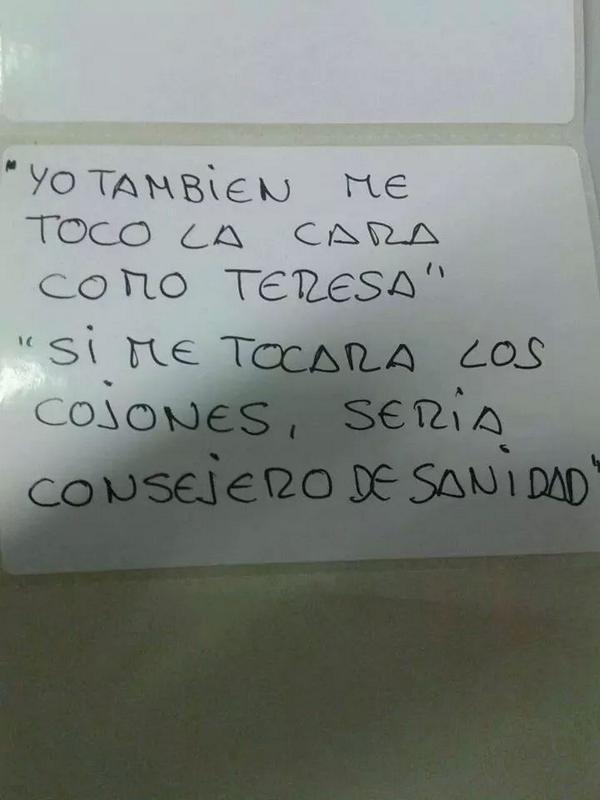 "YO TAMBiEN ME
TOCO LA CARA
COMO TERESA"
"Si ME TOCARA LOS
COJONES, SERiA
CONSEJERO DE SANiDAD"